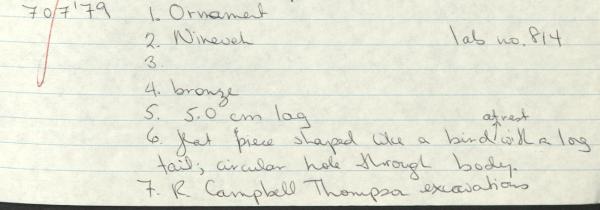 70/7'79 1. Ornament
2. Nineveh lab no. 814
3.
4. bronze
5. 5.0 cm log
at rest
6. flat piece shaped like a bird with a log
tail; circular hole through body.
7. R. Campbell Thompson excavations